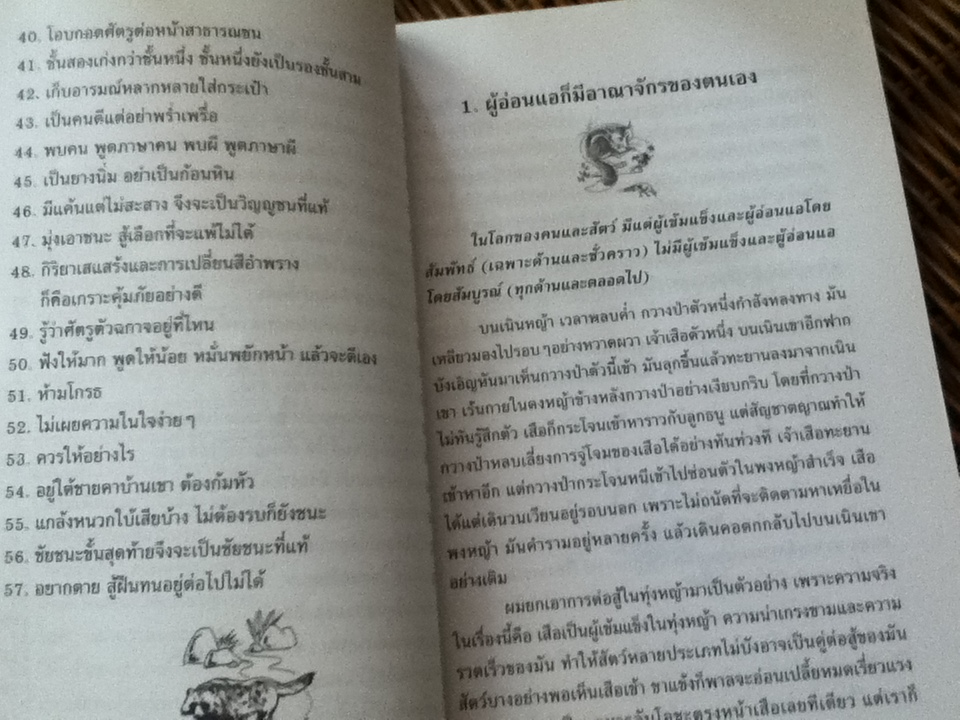 40. โอบกอดศัตรูต่อหน้าสาธารณชน
41. ชั้นสองเก่งกว่าชั้นหนึ่ง ชั้นหนึ่งยังเป็นรองชั้นสาม
42. เก็บอารมณ์หลากหลายใส่กระเป๋า
43. เป็นคนดีแต่อย่าพร่ำเพรื่อ
44. พบคน พูดภาษาคน พบผี พูดภาษาผี
45. เป็นยางนิ่ม อย่าเป็นก้อนหิน
46. มีแค้นแต่ไม่สะสาง จึงจะเป็นวิญญูชนที่แท้
47. มุ่งเอาชนะ สู้เลือกที่จะแพ้ไม่ได้
48. กิริยาเสแสร้งและการเปลี่ยนสีอำพราง
ก็คือเกราะคุ้มภัยอย่างดี
49. รู้ว่าศัตรูตัวฉกาจอยู่ที่ไหน
50. ฟังให้มาก พูดให้น้อย หมั่นพยักหน้า แล้วจะดีเอง
51. ห้ามโกรธ
52. ไม่เผยความในใจง่ายๆ
53. ควรให้อย่างไร
54. อยู่ใต้ชายคาบ้านเขา ต้องก้มหัว
55. แกล้งหนวกใบ้เสียบ้าง ไม่ต้องรบก็ยังชนะ
56. ชัยชนะขั้นสุดท้ายจึงจะเป็นชัยชนะที่แท้
57. อยากตาย สู้ฝืนทนอยู่ต่อไปไม่ได้
1. ผู้อ่อนแอก็มีอาณาจักรของตนเอง
ในโลกของคนและสัตว์ มีแต่ผู้เข้มแข็งและผู้อ่อนแอโดย
สัมพัทธ์ (เฉพาะด้านและชั่วคราว) ไม่มีผู้เข้มแข็งและผู้อ่อนแอ
โดยสัมบูรณ์ (ทุกด้านและตลอดไป)
บนเนินหญ้า เวลาพลบค่ำ กวางป่าตัวหนึ่งกำลังหลงทาง มัน
เหลียวมองไปรอบๆอย่างหวาดผวา เจ้าเสือตัวหนึ่ง บนเนินเขาอีกฟาก
บังเอิญหันมาเห็นกวางป่าตัวนี้เข้า มันลุกขึ้นแล้วทะยานลงมาจากเนิน
เขา เร้นกายในดงหญ้าข้างหลังกวางป่าอย่างเงียบกริบ โดยที่กวางป่า
ไม่ทันรู้สึกตัว เสือก็กระโจนเข้าหาราวกับลูกธนู แต่สัญชาตญาณทำให้
กวางป่าหลบเลี่ยงการจู่โจมของเสือได้อย่างทันท่วงที เจ้าเสือทะยาน
เข้าหาอีก แต่กวางป่ากระโจนหนีเข้าไปซ่อนตัวในพงหญ้าสำเร็จ เสือ
ได้แต่เดินวนเวียนอยู่รอบนอก เพราะไม่ถนัดที่จะติดตามหาเหยื่อใน
พงหญ้า มันคำรามอยู่หลายครั้ง แล้วเดินคอตกกลับไปบนเนินเขา
อย่างเดิม
ผมยกเอาการต่อสู้ในทุ่งหญ้ามาเป็นตัวอย่าง เพราะความจริง
ในเรื่องนี้คือ เสือเป็นผู้เข้มแข็งในทุ่งหญ้า ความน่าเกรงขามและความ
รวดเร็วของมัน ทำให้สัตว์หลายประเภทไม่บังอาจเป็นคู่ต่อสู้ของมัน
สัตว์บางอย่างพอเห็นเสือเข้า ขาแข้งก็พาลจะอ่อนเปลี้ยหมดเรี่ยวแรง
ตรงหน้าเสือเลยทีเดียว แต่เราก็